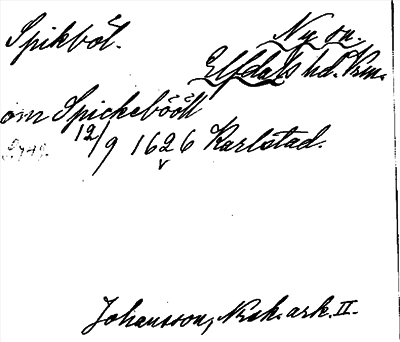 Spikböl. Ny sn.
Elfdals hd. Vrm.
om Spickebööll
12/9 1626 Karlstad.
Johansson, Nock. ark. II.